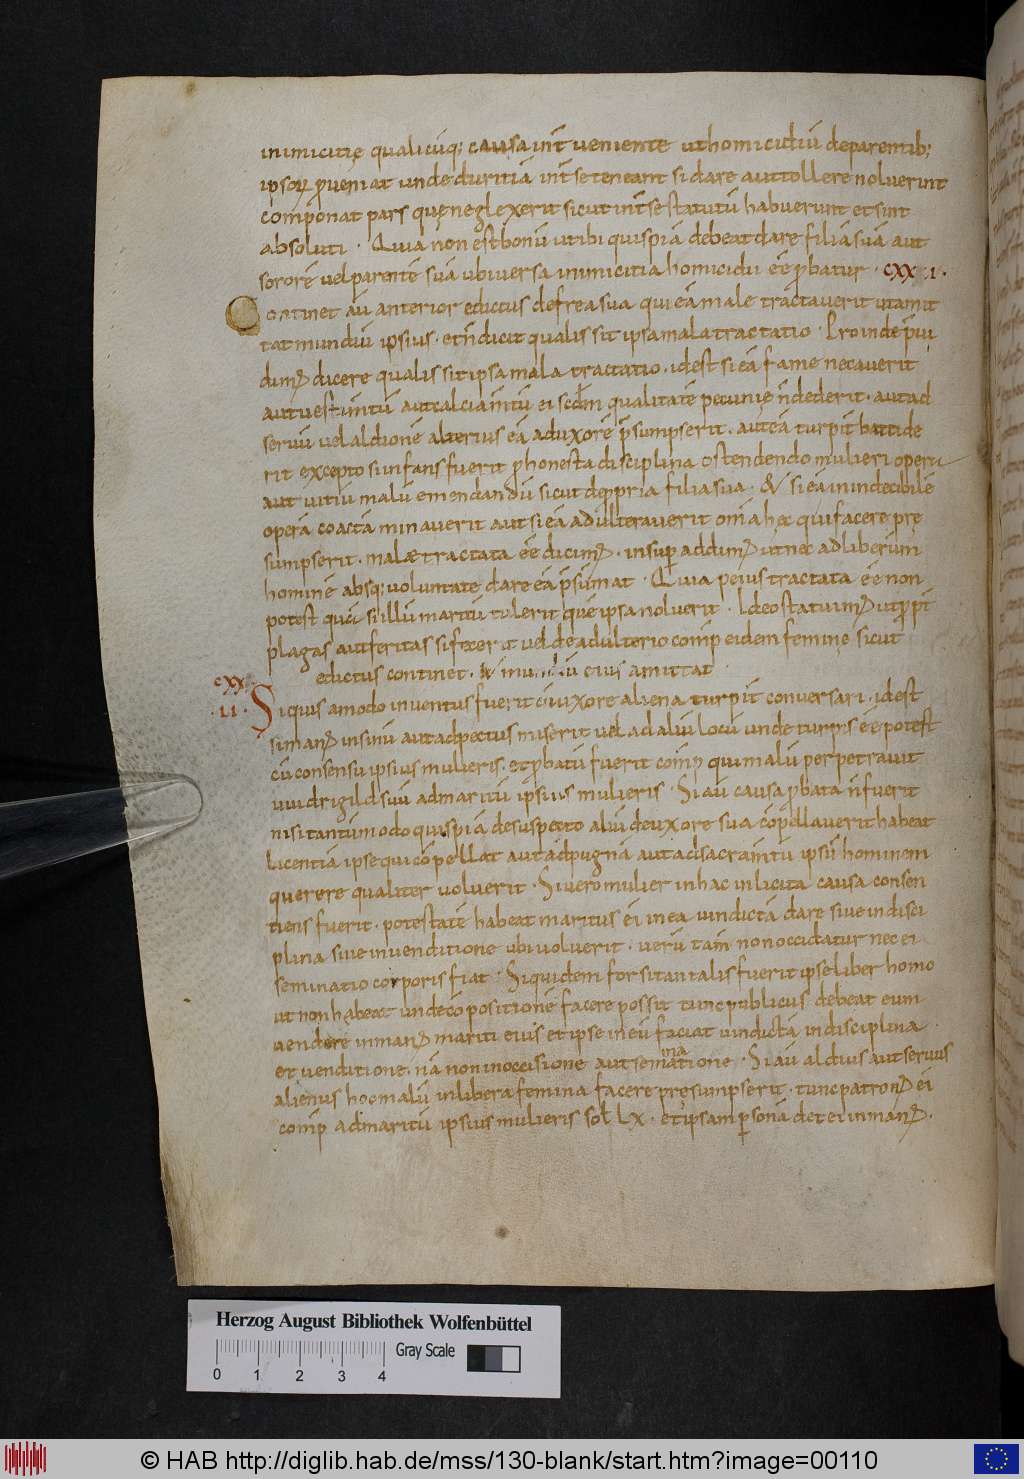 inimicitię qualicūq; causa int̄ueniente uthomicidiū deparentib;
ipsoꝝ ꝓueniat unde duritiā int̄seteneant si dare auttollere noluerint
componat pars quęneglexerit sicut int̄sestatutū habuerunt et sint
absoluti · Quia non estbonū utibi quispiā debeat dare filiā suā aut
sororē uelparentē suā ubiuersa inimicitia homicidii eē ꝓbatur · CXX I ·
Continet aū anterior edictus defreasua qui eā male tractauerit utamit
tat mundiū ipsius · et n̄ dicit qualis sit ipsa mala tractatio · Proinde p̄ui
dim᷒ dicere qualis sit ipsa mala tractatio · idest si eā fame necauerit
aut uestim̄tū aut calciam̄tū ei scd̄m qualitatē pecunię n̄ dederit · aut ad
seruū uel aldionē alterius eā aduxorē p̄sumpserit · aut eā turpit̄ battide
rit excepto si infans fuerit ꝓ honesta disciplina ostendendo mulieri opera
aut uitiū malū emendandū sicut de ꝓpria filia sua · & si eā in indecibilē
operā coactā minauerit aut si eā adulterauerit om̄ia hęc qui facere prę
sumpserit · malæ tractata eē dicim᷒ · insuꝑ addim᷒ ut nec ad liberum
hominē absq; uoluntate dare eā p̄sumat · Quia peius tractata eē non
potest quā si illū maritū tulerit quē ipsa noluerit · Ideo statuim᷒ ut ꝓpt̄
plagas aut feritas si fecerit uel de adulterio comp̄ eidem feminę sicut
edictus continet · & mundiū eius amittat
CXX
· II · Si quis amodo inuentus fuerit cū uxore aliena turpit̄ conuersari · idest
si man᷒ in sinū aut ad pectus miserit uel ad aliū locū unde turpis eē potest
cū consensu ipsius mulieris · et ꝓbatū fuerit comp̄ qui malū perpetrauit
uuidrigild suū ad maritū ipsius mulieris · Si aū causa ꝓbata n̄ fuerit
nisi tantūmodo quispiā desuspecto aliū de uxore sua cōpellauerit habeat
licentiā ipse qui cōpellat aut ad pugnā aut ad sacram̄tū ipsū hominem
querere qualiter uoluerit · Si uero mulier in hac inlicita causa consen
tiens fuerit · potestatē habeat maritus ei in ea uindictā dare siue in disci
plina siue in uenditione ubi uoluerit · uerū tam̄ non occidatur nec ei
seminatio corporis fiat · Si quidem forsitan talis fuerit ipse liber homo
ut non habeat unde cōpositionē facere possit tunc publicus debeat eum
uendere in man᷒ mariti eius et ipse in eū faciat uindictā in disciplina
et uenditione · nā non in occisione aut sematione · Si aū aldius aut seruus
ina
alienus hoc malū in libera femina facere pręsumpserit · tunc patron᷒ ei
comp̄ ad maritū ipsius mulieris sol̄ LX · et ipsam ꝑsonā det ei in man᷒ ·
Herzog August Bibliothek Wolfenbüttel
Gray Scale
0 1 2 3 4
© HAB http://diglib.hab.de/mss/130-blank/start.htm?image=00110